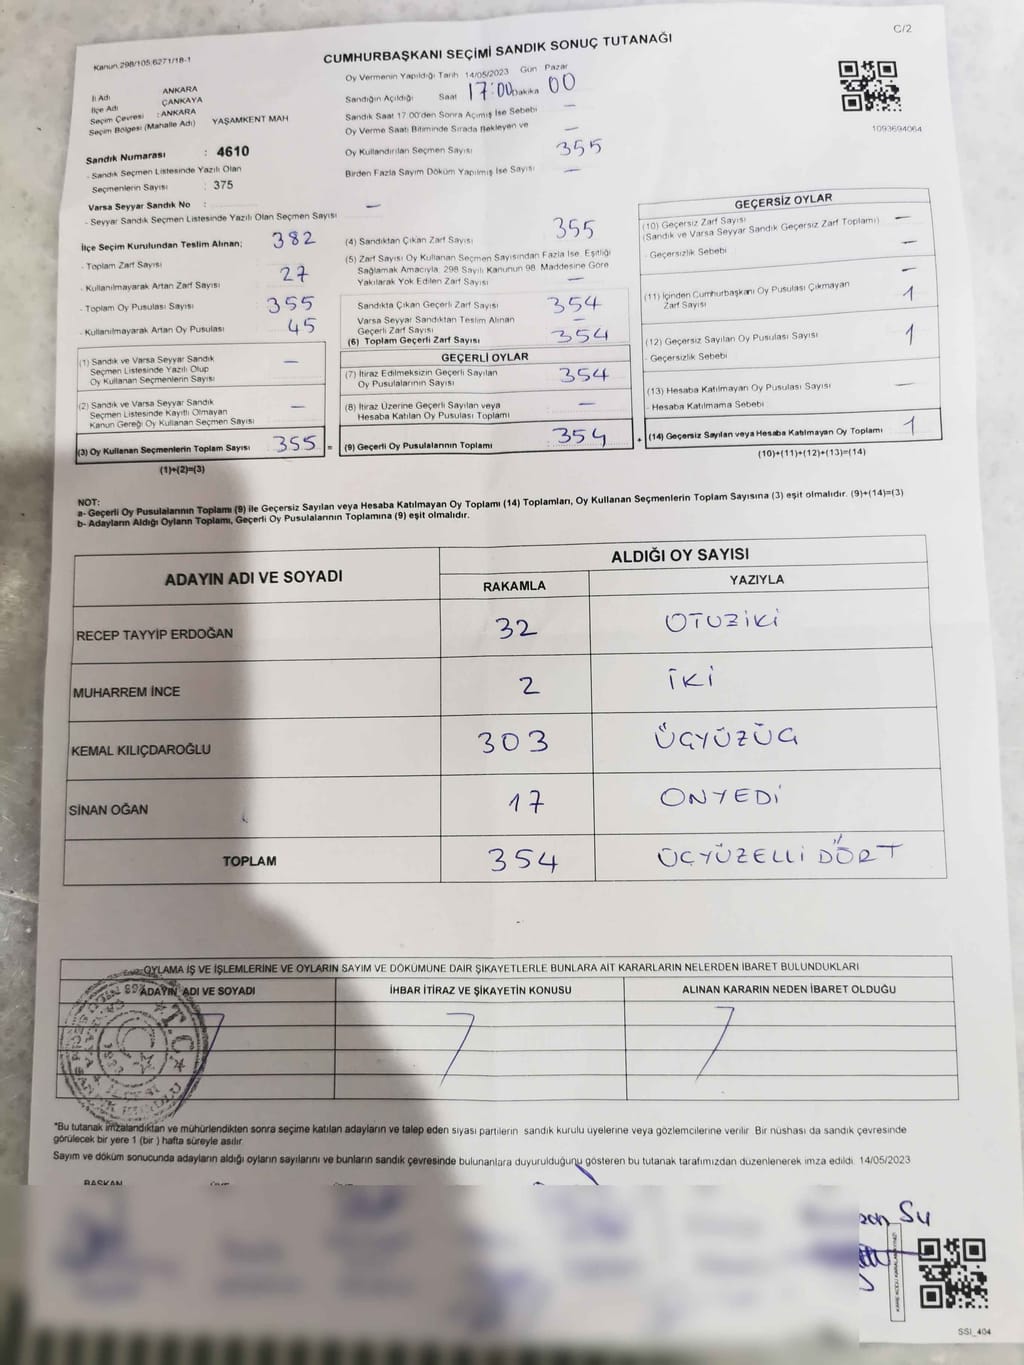 C/2
Kanun.298/105.6271/18-1
CUMHURBAŞKANI SEÇİMİ SANDIK SONUÇ TUTANAĞI
İl Adı ANKARA
İlçe Adı ÇANKAYA
Seçim Çevresi : ANKARA
Seçim Bölgesi (Mahalle Adı) YAŞAMKENT MAH
Sandık Numarası : 4610
- Sandık Seçmen Listesinde Yazılı Olan
Seçmenlerin Sayısı : 375
Varsa Seyyar Sandık No : —
- Seyyar Sandık Seçmen Listesinde Yazılı Olan Seçmen Sayısı
Oy Vermenin Yapıldığı Tarih 14/05/2023 Gün Pazar
Sandığın Açıldığı Saat 17:00 Dakika 00
Sandık Saat 17.00'den Sonra Açımış İse Sebebi —
Oy Verme Saati Bitiminde Sırada Bekleyen ve —
Oy Kullandırılan Seçmen Sayısı 355
Birden Fazla Sayım Döküm Yapılmış İse Sayısı —
1093694064
İlçe Seçim Kurulundan Teslim Alınan;
- Toplam Zarf Sayısı 382
- Kullanılmayarak Artan Zarf Sayısı 27
- Toplam Oy Pusulası Sayısı 355
- Kullanılmayarak Artan Oy Pusulası 45
(1) Sandık ve Varsa Seyyar Sandık
Seçmen Listesinde Yazılı Olup
Oy Kullanan Seçmenlerin Sayısı —
(2) Sandık ve Varsa Seyyar Sandık
Seçmen Listesinde Kayıtlı Olmayan
Kanun Gereği Oy Kullanan Seçmen Sayısı —
(3) Oy Kullanan Seçmenlerin Toplam Sayısı 355 =
(1)+(2)=(3)
(4) Sandıktan Çıkan Zarf Sayısı 355
(5) Zarf Sayısı Oy Kullanan Seçmen Sayısından Fazla İse, Eşitliği
Sağlamak Amacıyla, 298 Sayılı Kanunun 98. Maddesine Göre
Yakılarak Yok Edilen Zarf Sayısı —
Sandıkta Çıkan Geçerli Zarf Sayısı 354
Varsa Seyyar Sandıktan Teslim Alınan
Geçerli Zarf Sayısı —
(6) Toplam Geçerli Zarf Sayısı 354
GEÇERLİ OYLAR
(7) İtiraz Edilmeksizin Geçerli Sayılan
Oy Pusulalarının Sayısı 354
(8) İtiraz Üzerine Geçerli Sayılan veya
Hesaba Katılan Oy Pusulası Toplamı —
(9) Geçerli Oy Pusulalarının Toplamı : 354 +
GEÇERSİZ OYLAR
(10) Geçersiz Zarf Sayısı —
(Sandık ve Varsa Seyyar Sandık Geçersiz Zarf Toplamı)
- Geçersizlik Sebebi —
—
(11) İçinden Cumhurbaşkanı Oy Pusulası Çıkmayan
Zarf Sayısı 1
(12) Geçersiz Sayılan Oy Pusulası Sayısı 1
- Geçersizlik Sebebi
(13) Hesaba Katılmayan Oy Pusulası Sayısı —
- Hesaba Katılmama Sebebi
(14) Geçersiz Sayılan veya Hesaba Katılmayan Oy Toplamı 1
(10)+(11)+(12)+(13)=(14)
NOT:
a- Geçerli Oy Pusulalarının Toplamı (9) ile Geçersiz Sayılan veya Hesaba Katılmayan Oy Toplamı (14) Toplamları, Oy Kullanan Seçmenlerin Toplam Sayısına (3) eşit olmalıdır. (9)+(14)=(3)
b- Adayların Aldığı Oyların Toplamı, Geçerli Oy Pusulalarının Toplamına (9) eşit olmalıdır.
ADAYIN ADI VE SOYADI ALDIĞI OY SAYISI
RAKAMLA YAZIYLA
RECEP TAYYİP ERDOĞAN 32 OTUZİKİ
MUHARREM İNCE 2 İKİ
KEMAL KILIÇDAROĞLU 303 ÜÇYÜZÜÇ
SİNAN OĞAN 17 ONYEDİ
TOPLAM 354 ÜÇYÜZELLİ DÖRT
OYLAMA İŞ VE İŞLEMLERİNE VE OYLARIN SAYIM VE DÖKÜMÜNE DAİR ŞİKAYETLERLE BUNLARA AİT KARARLARIN NELERDEN İBARET BULUNDUKLARI
ADAYIN ADI VE SOYADI İHBAR İTİRAZ VE ŞİKAYETİN KONUSU ALINAN KARARIN NEDEN İBARET OLDUĞU
T.C.
*Bu tutanak imzalandıktan ve mühürlendikten sonra seçime katılan adayların ve talep eden siyasi partilerin sandık kurulu üyelerine veya gözlemcilerine verilir. Bir nüshası da sandık çevresinde
görülecek bir yere 1 (bir ) hafta süreyle asılır.
Sayım ve döküm sonucunda adayların aldığı oyların sayılarını ve bunların sandık çevresinde bulunanlara duyurulduğunu gösteren bu tutanak tarafımızdan düzenlenerek imza edildi. 14/05/2023
BAŞKAN
SSI_404